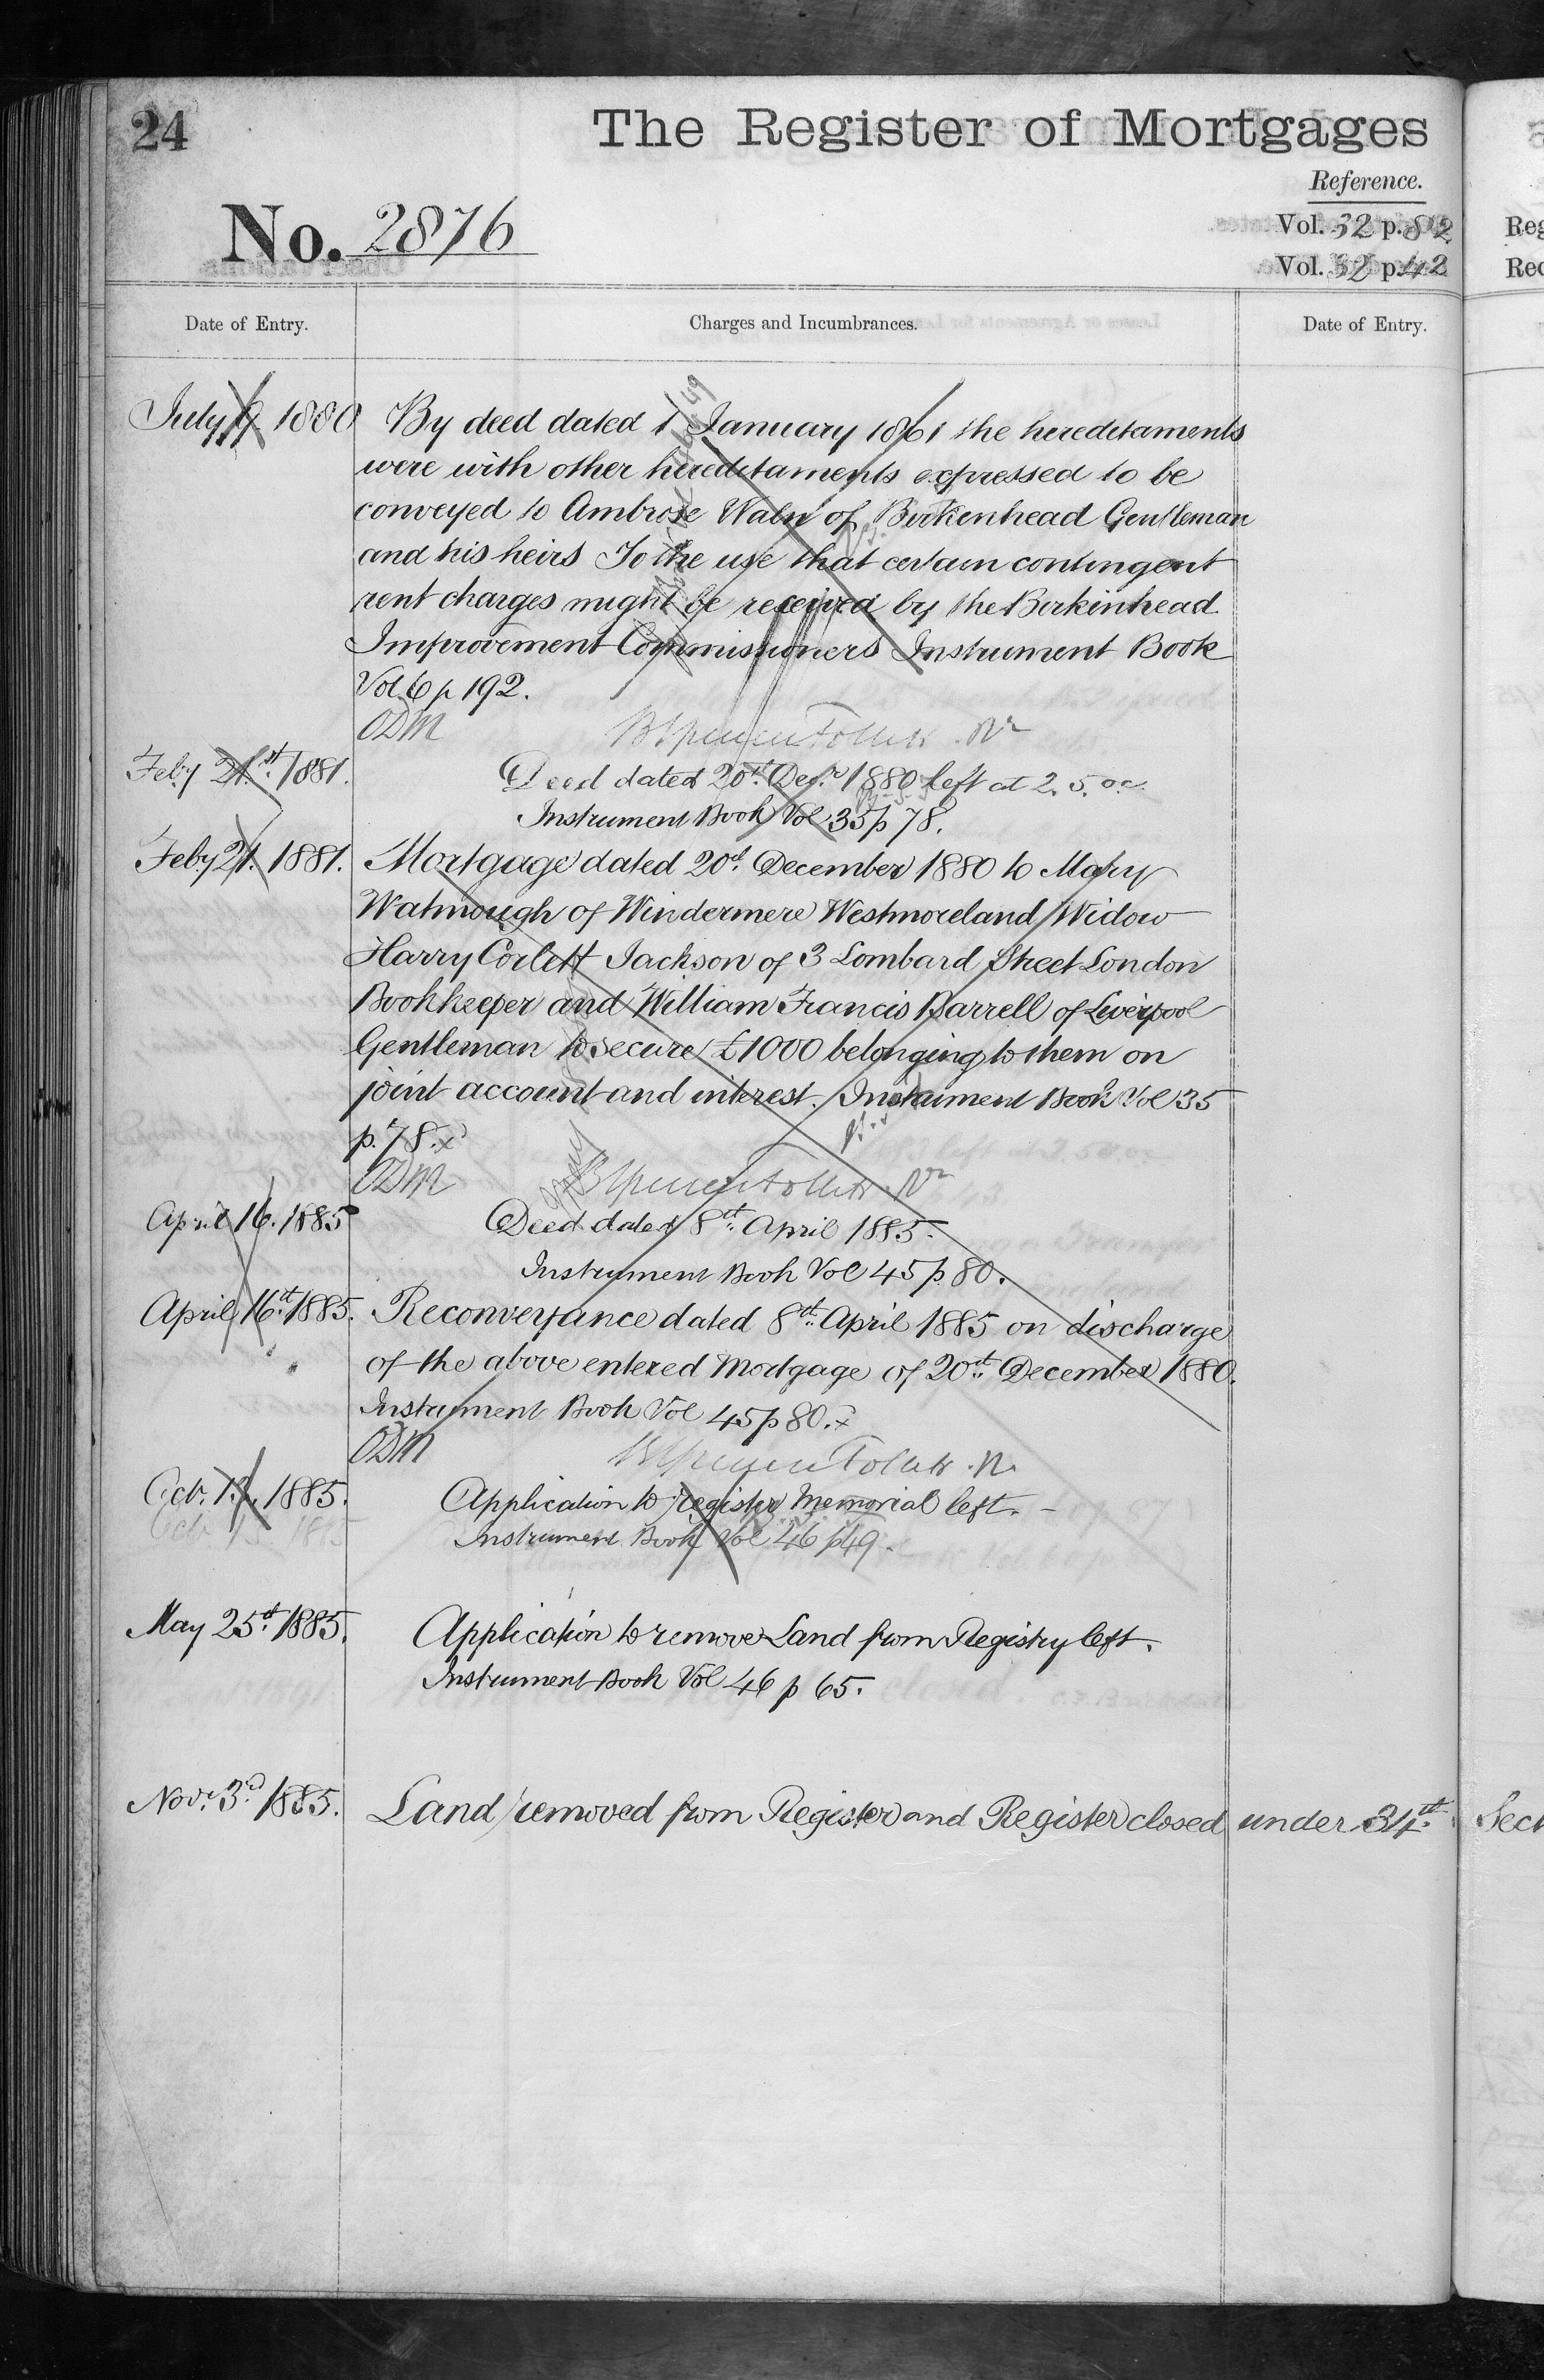 24
The Register of Mortgages
Reference.
No. 2876
Vol. 32 p. 82
Vol. 32 p. 42
Reg
Rec
Date of Entry.
Charges and Incumbrances.
Date of Entry.
July 9 1880
By deed dated 1 January 1861 the hereditaments
were with other hereditaments expressed to be
conveyed to Ambrose Waln of Birkenhead Gentleman
and his heirs To the use that certain contingent
rent charges might be received by the Birkinhead
Improvement Commissioners Instrument Book
Vol 6 p 192.
ODM
Feby 21.st 1881.
Deed dated 20th Decr 1880 left at 2.5. oc.
Instrument Book Vol 35 p 78.
Feby 21. 1881.
Mortgage dated 20th December 1880 to Mary
Watmough of Windermere Westmoreland Widow
Harry Corlett Jackson of 3 Lombard Street London
Bookkeeper and William Francis Barrell of Liverpool
Gentleman to secure £1000 belonging to them on
joint account and interest. Instrument Book Vol 35
p. 78. x
ODM
April 16. 1885
Deed dated 8th April 1885.
Instrument Book Vol 45 p 80.
April 16th 1885.
Reconveyance dated 8th April 1885 on discharge
of the above entered Mortgage of 20th December 1880.
Instrument Book Vol 45 p 80. x
ODM
Oct. 1885.
Application to register Memorial left. -
Instrument Book Vol 46 p 49.
May 25th 1885.
Application to remove Land from Registry left.
Instrument Book Vol 46 p 65.
Novr 3rd 1885.
Land removed from Register and Register closed under 34th Sect